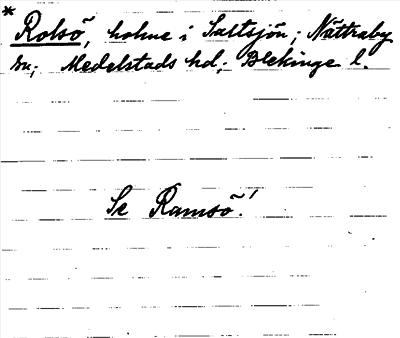 *
Rolsö, holme i Saltsjön; Nättraby
sn; Medelstads hd; Blekinge l.
Se Ramsö!